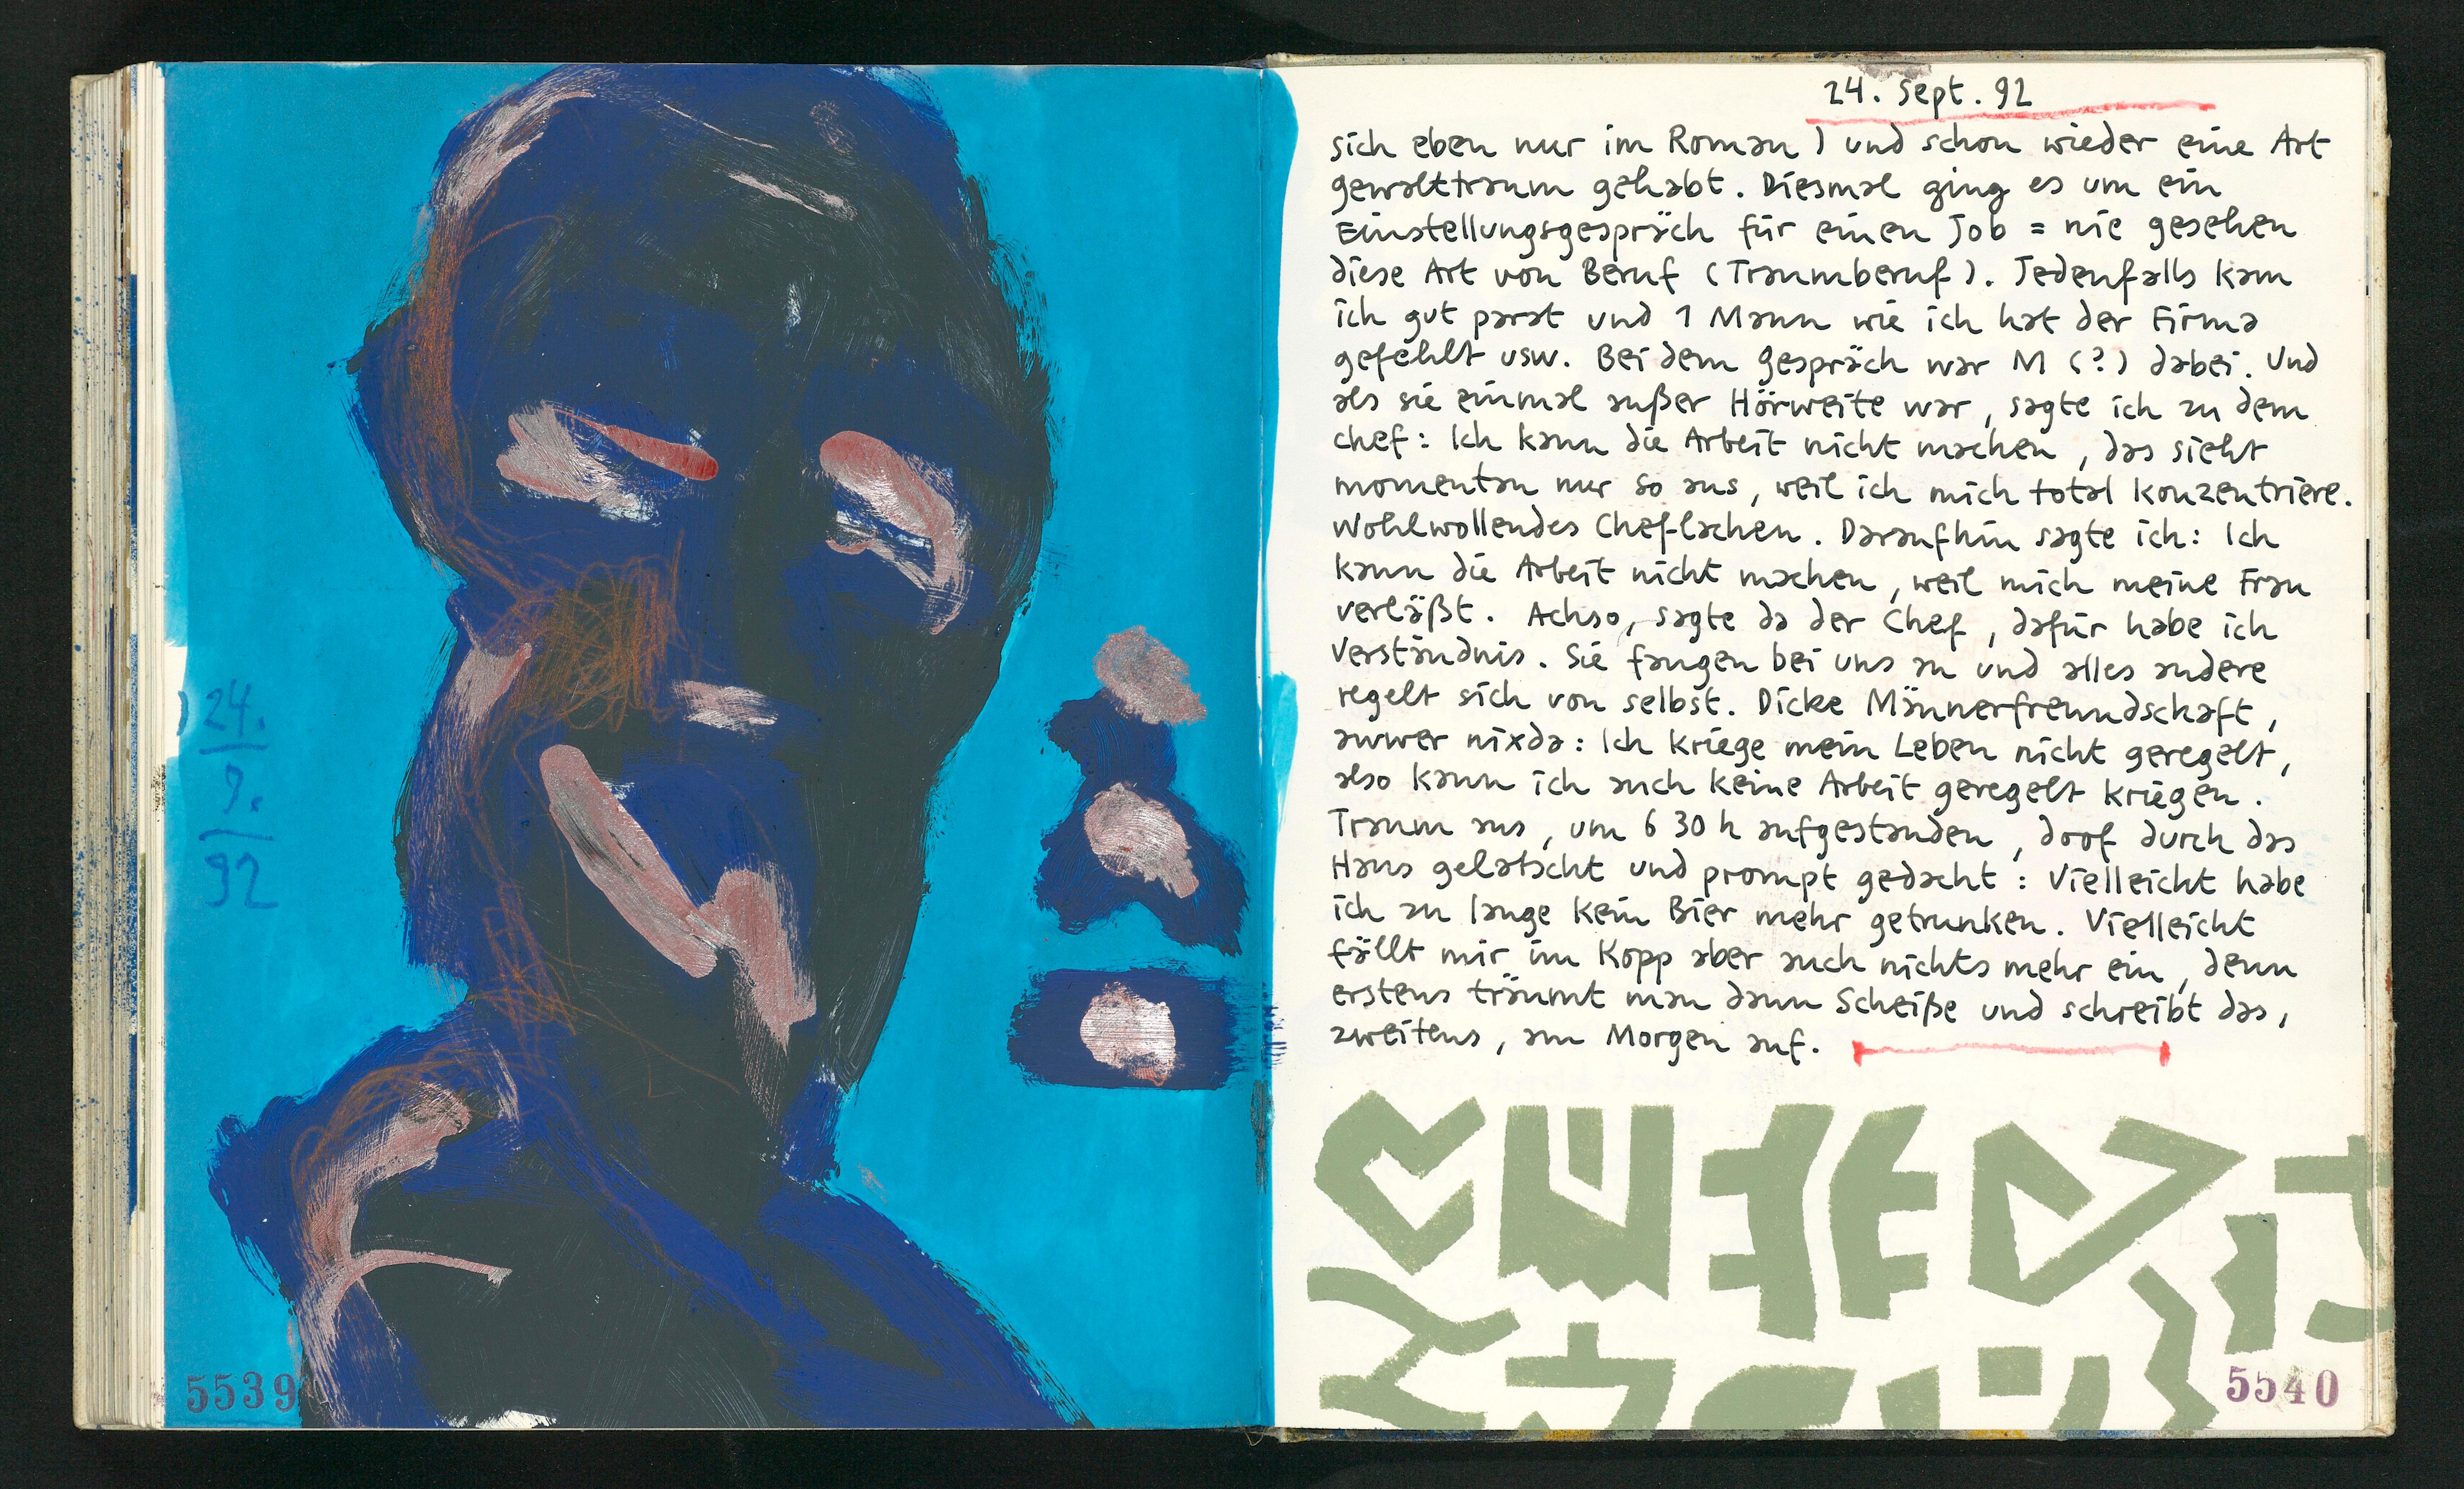 24.
9.
92
5539
24. Sept. 92
sich eben nur im Roman) und schon wieder eine Art
gewalttraum gehabt. Diesmal ging es um ein
Einstellungsgespräch für einen Job = nie gesehen
diese Art von Beruf (Traumberuf). Jedenfalls kam
ich gut parat und 1 Mann wie ich hat der Firma
gefehlt usw. Bei dem gespräch war M (?) dabei. Und
als sie einmal außer Hörweite war, sagte ich zu dem
chef: Ich kann die Arbeit nicht machen, das sieht
momentan nur so aus, weil ich mich total konzentriere.
Wohlwollendes Chef-lachen. Daraufhin sagte ich: Ich
kann die Arbeit nicht machen, weil mich meine Frau
verläßt. Achso, sagte da der Chef, dafür habe ich
Verständnis. Sie fangen bei uns an und alles andere
regelt sich von selbst. Dicke Männerfreundschaft,
awwer nixda: Ich kriege mein Leben nicht geregelt,
also kann ich auch keine Arbeit geregelt kriegen.
Traum aus, um 6 30 h aufgestanden, doof durch das
Haus gelatscht und prompt gedacht: Vielleicht habe
ich zu lange kein Bier mehr getrunken. Vielleicht
fällt mir im Kopp aber auch nichts mehr ein, denn
erstens träumt man dann Scheiße und schreibt das,
zweitens, am Morgen auf.
5540